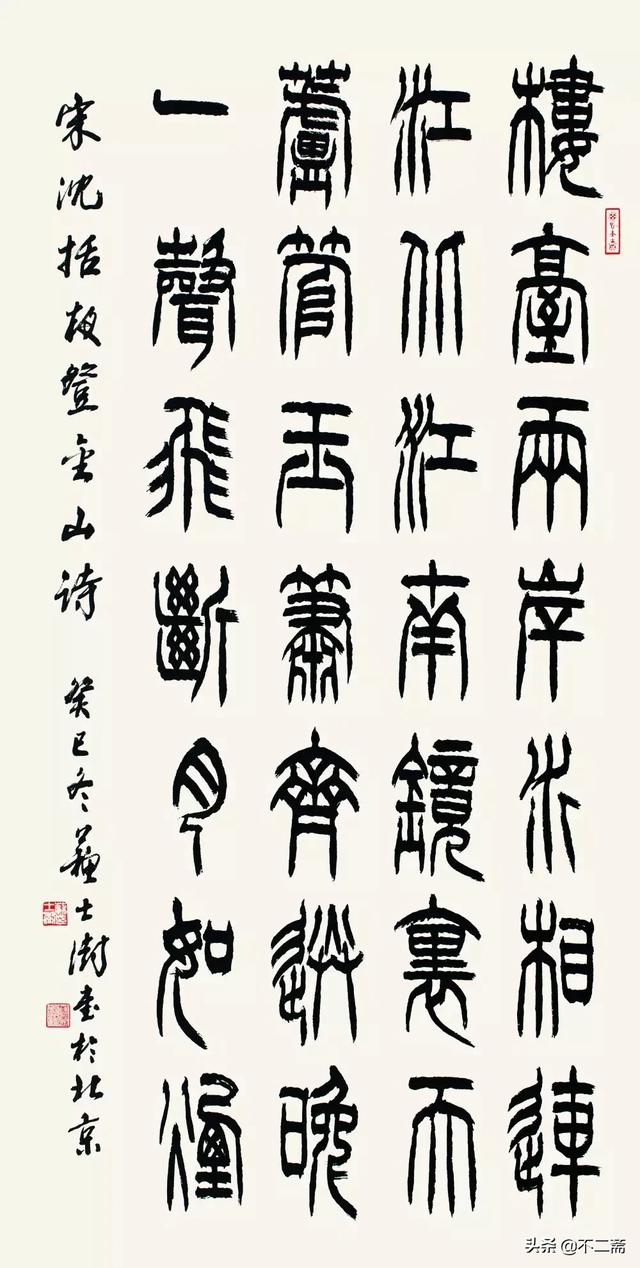 樓臺兩岸水相連
江北江南鏡裏天
蘆管玉簫齊送晚
一聲飛斷月如煙
宋沈括夜登金山诗 癸巳冬蘇士澍書於北京
头条 @不二斋